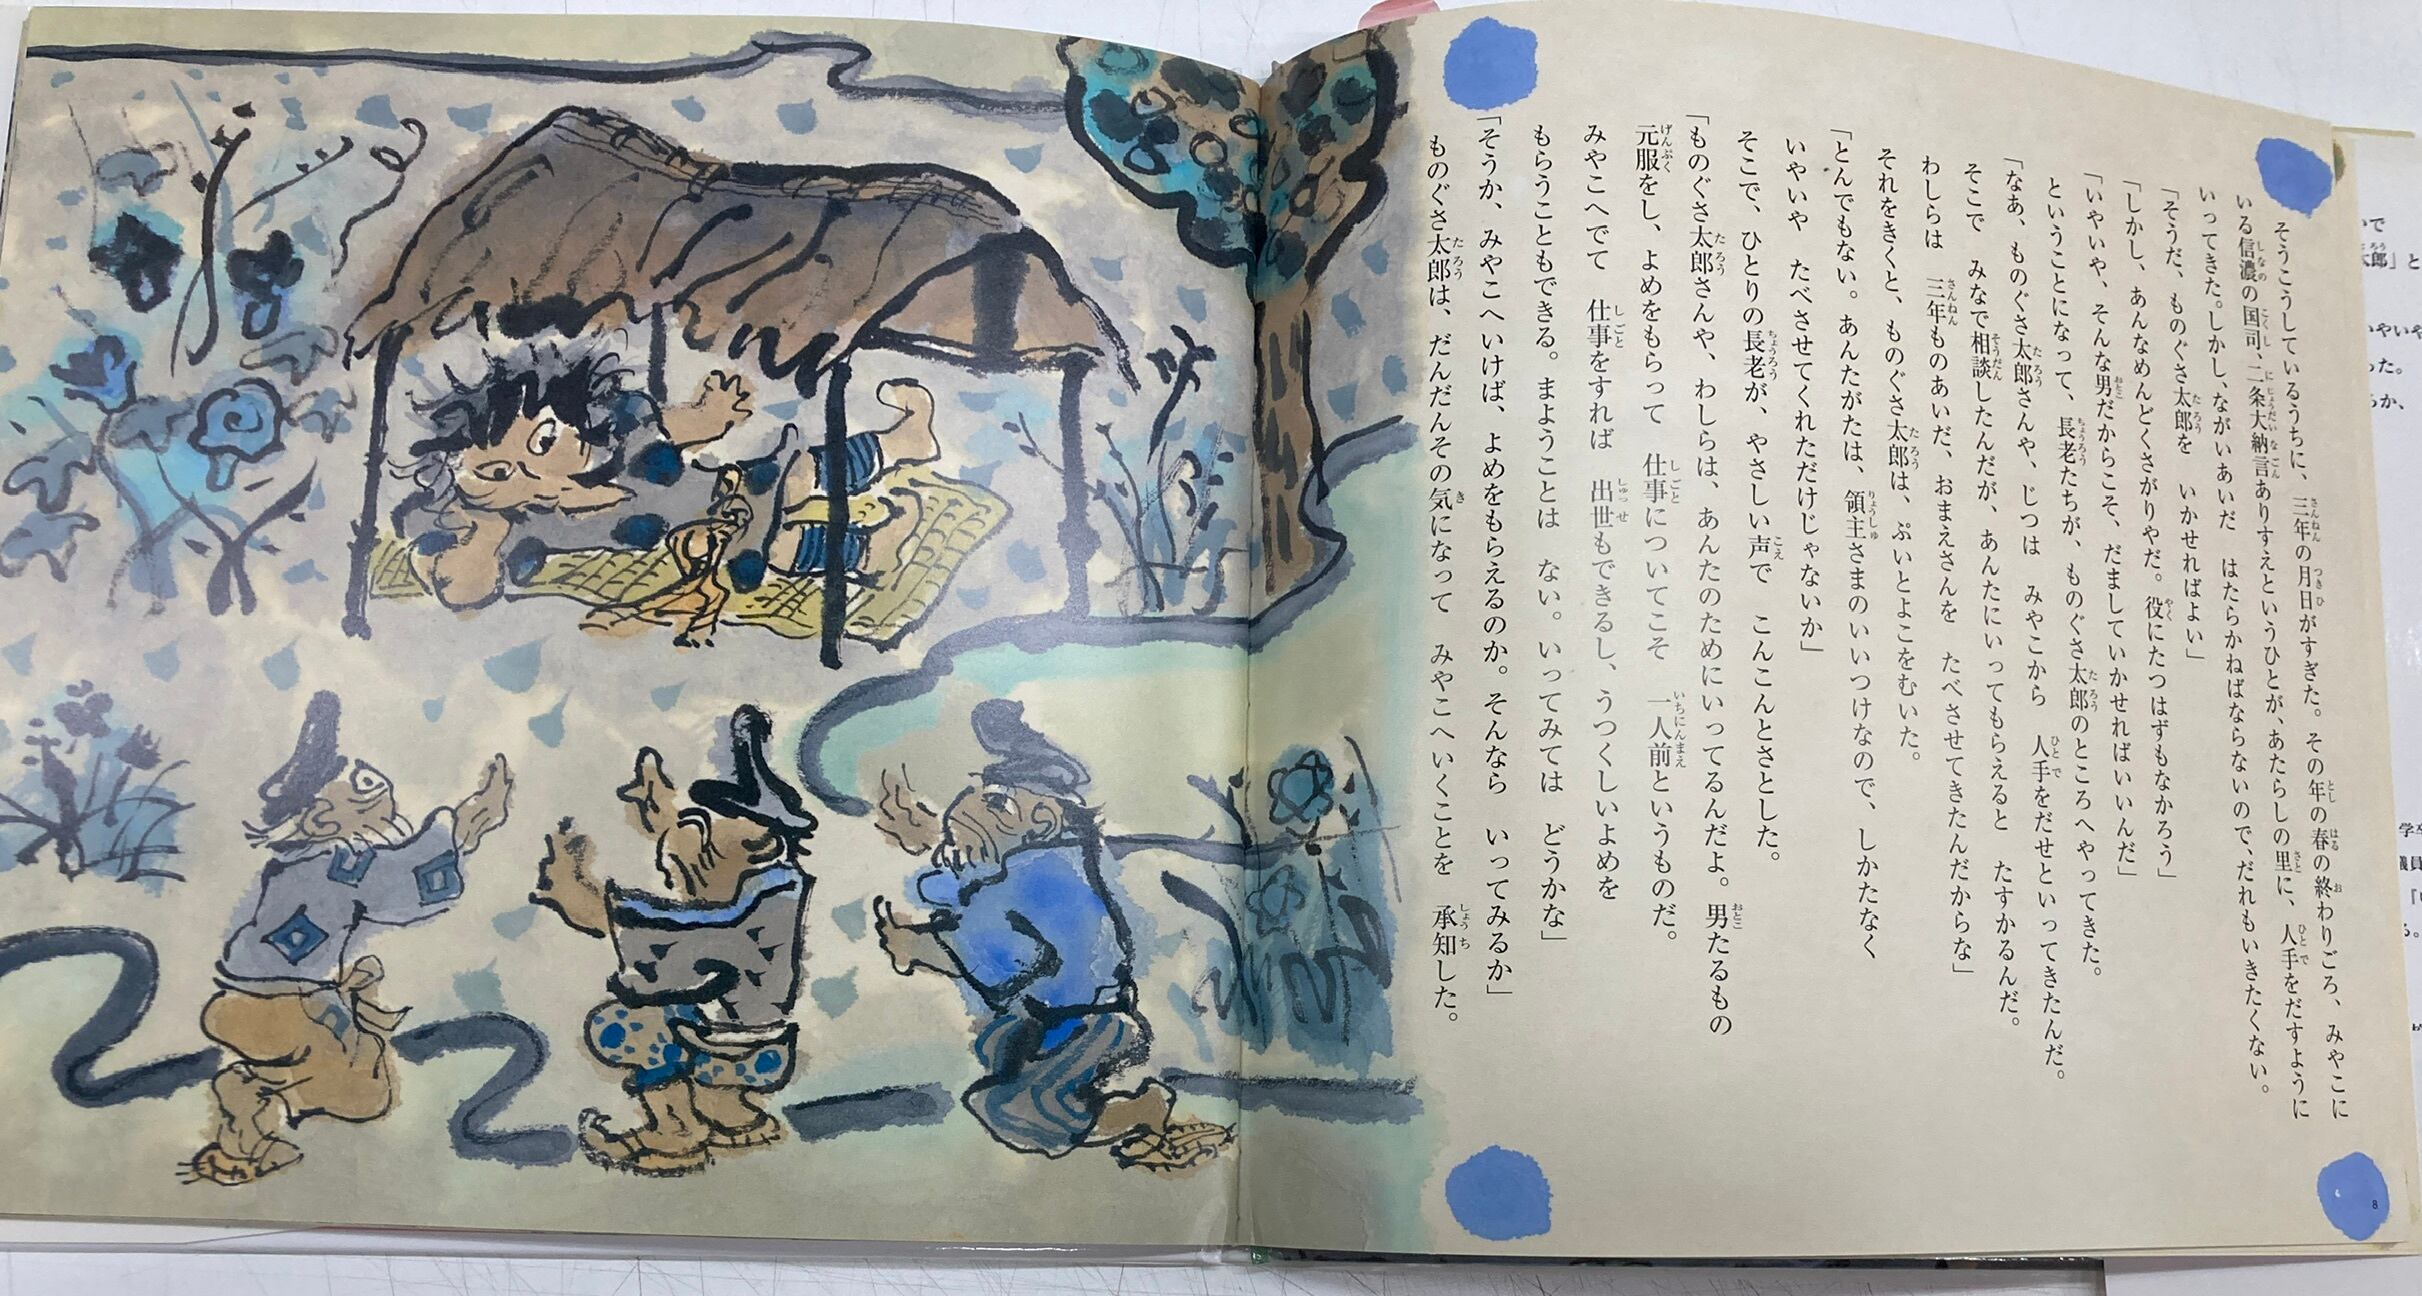 そうこうしているうちに、三年の月日がすぎた。その年の春の終わりごろ、みやこに
いる信濃の国司、二条大納言ありすえというひとが、あたらしの里に、人手をだすように
いってきた。しかし、ながいあいだ　はたらかねばならないので、だれもいきたくない。
「そうだ、ものぐさ太郎を　いかせればよい」
「しかし、あんなめんどくさがりやだ。役にたつはずもなかろう」
「いやいや、そんな男だからこそ、だましていかせればいいんだ」
ということになって、長老たちが、ものぐさ太郎のところへやってきた。
「なあ、ものぐさ太郎さんや、じつは　みやこから　人手をだせといってきたんだ。
そこで　みなで相談したんだが、あんたにいってもらえると　たすかるんだ。
わしらは　三年ものあいだ、おまえさんを　たべさせてきたんだからな」
それをきくと、ものぐさ太郎は、ぷいとよこをむいた。
「とんでもない。あんたがたは、領主さまのいいつけなので、しかたなく
いやいや　たべさせてくれただけじゃないか」
そこで、ひとりの長老が、やさしい声で　こんこんとさとした。
「ものぐさ太郎さんや、わしらは、あんたのためにいってるんだよ。男たるもの
元服をし、よめをもらって　仕事についてこそ　一人前というものだ。
みやこへでて　仕事をすれば　出世もできるし、うつくしいよめを
もらうこともできる。まようことは　ない。いってみては　どうかな」
「そうか、みやこへいけば、よめをもらえるのか。そんなら　いってみるか」
ものぐさ太郎は、だんだんその気になって　みやこへいくことを　承知した。
8